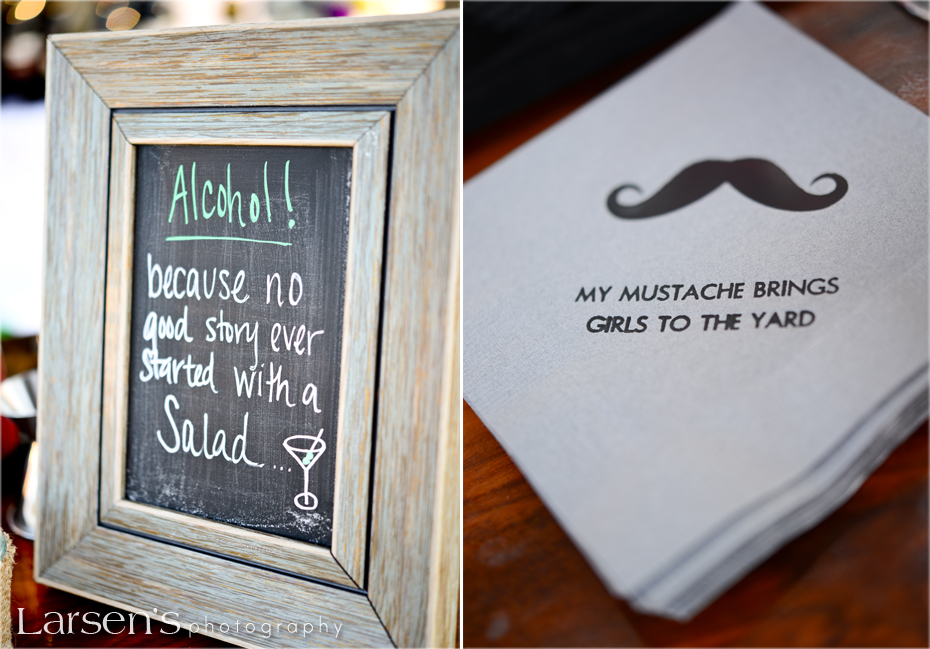 Alcohol!
because no
good story ever
started with a
Salad...
MY MUSTACHE BRINGS
GIRLS TO THE YARD
Larsen's photography